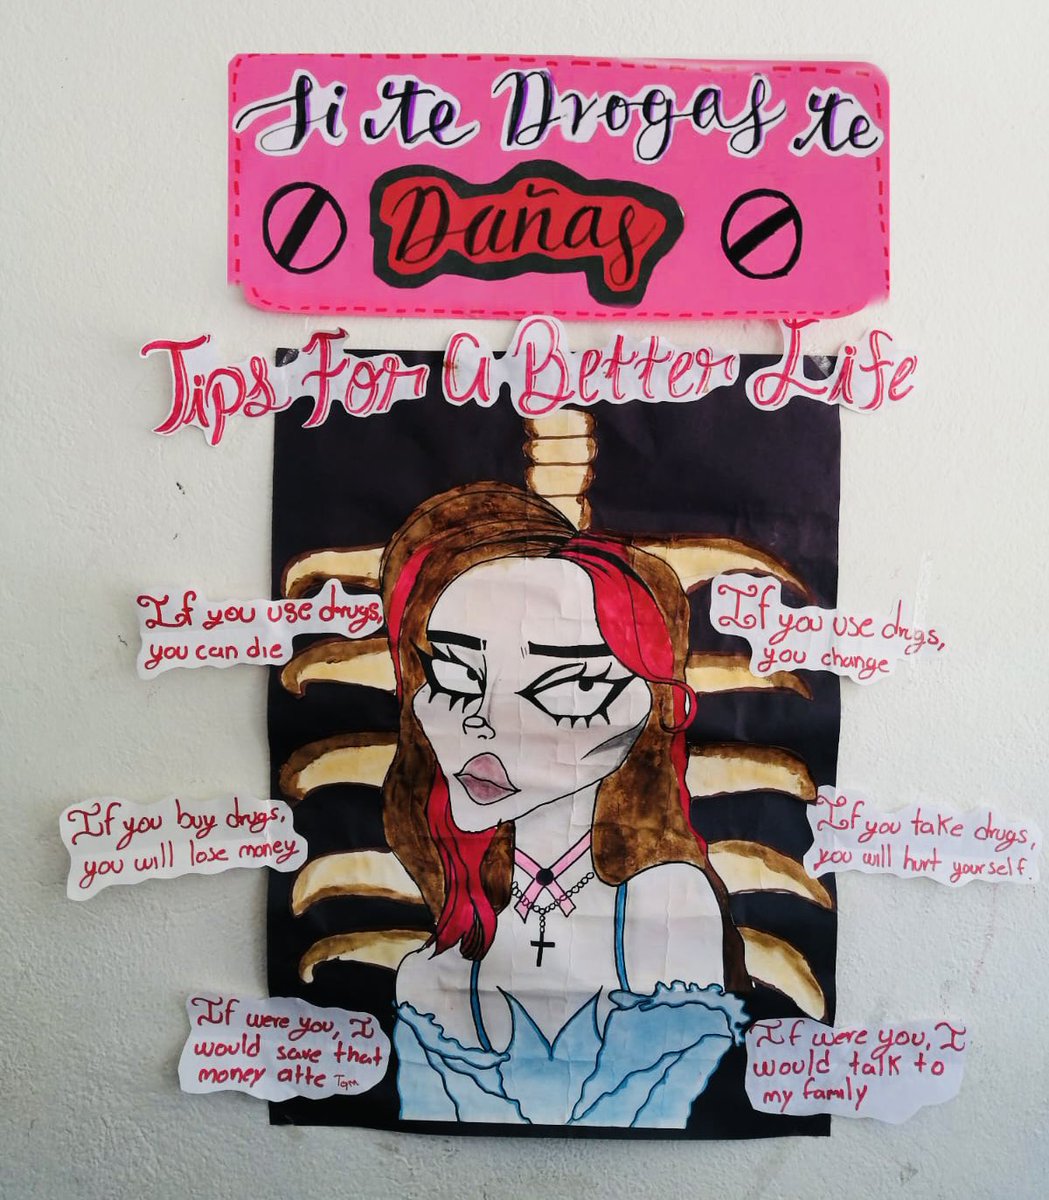 Si te Drogas te
Dañas
Tips For A Better Life
If you use drugs,
you can die
If you use drugs,
you change
If you buy drugs,
you will lose money
If you take drugs,
you will hurt yourself.
If were you, I
would save that
money atte Tqm
If were you, I
would talk to
my family